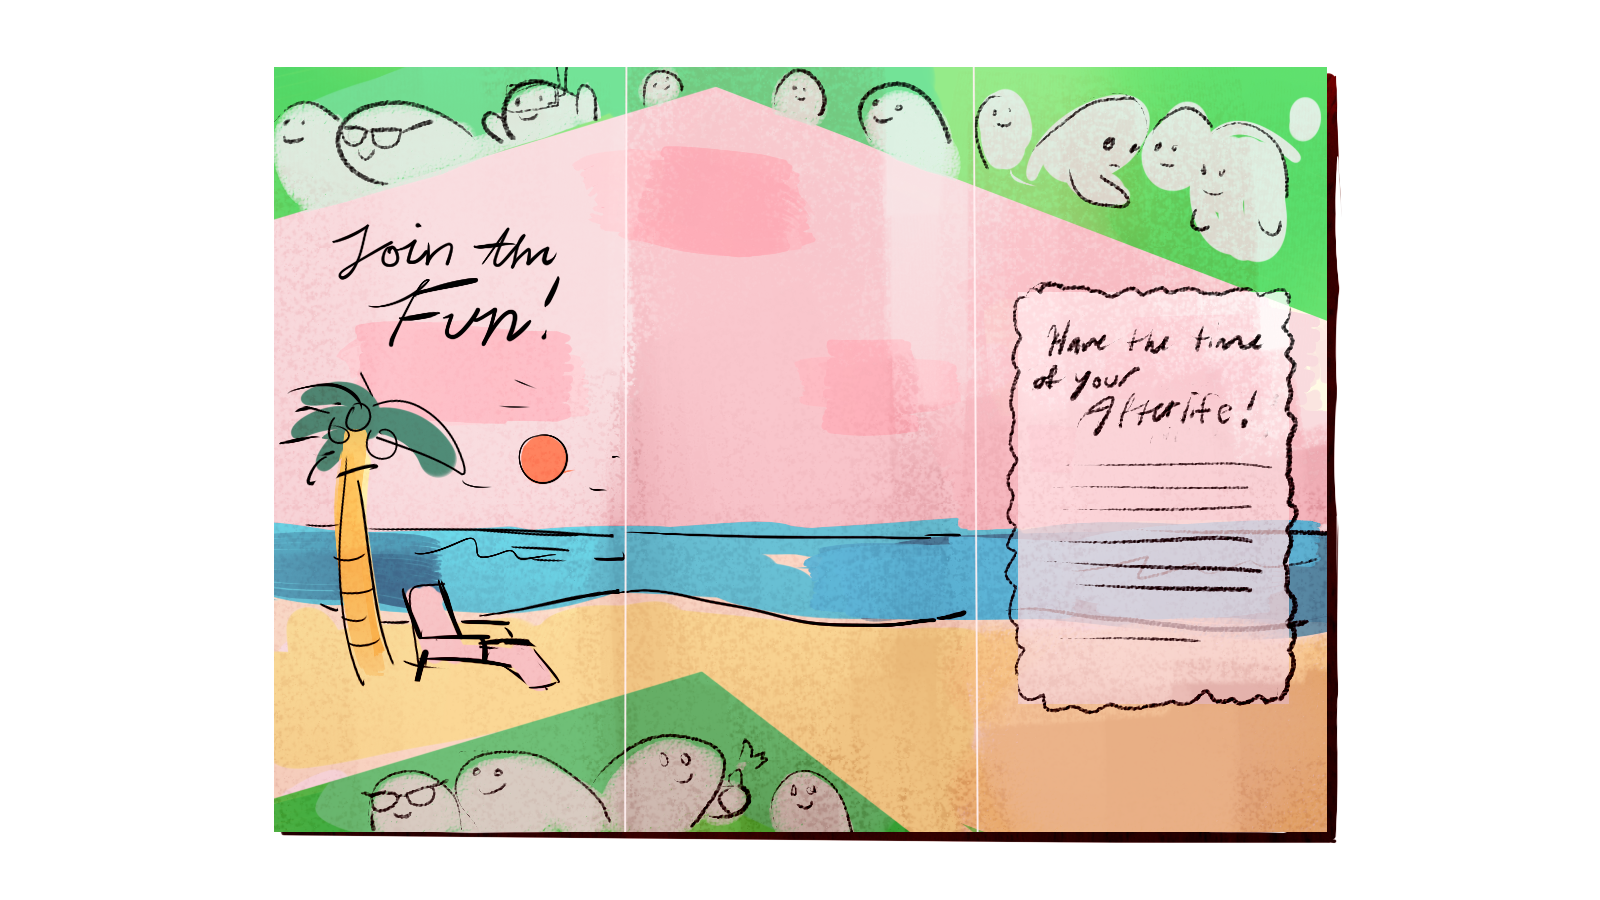 Join the
Fun!
Have the time
of your
Afterlife!